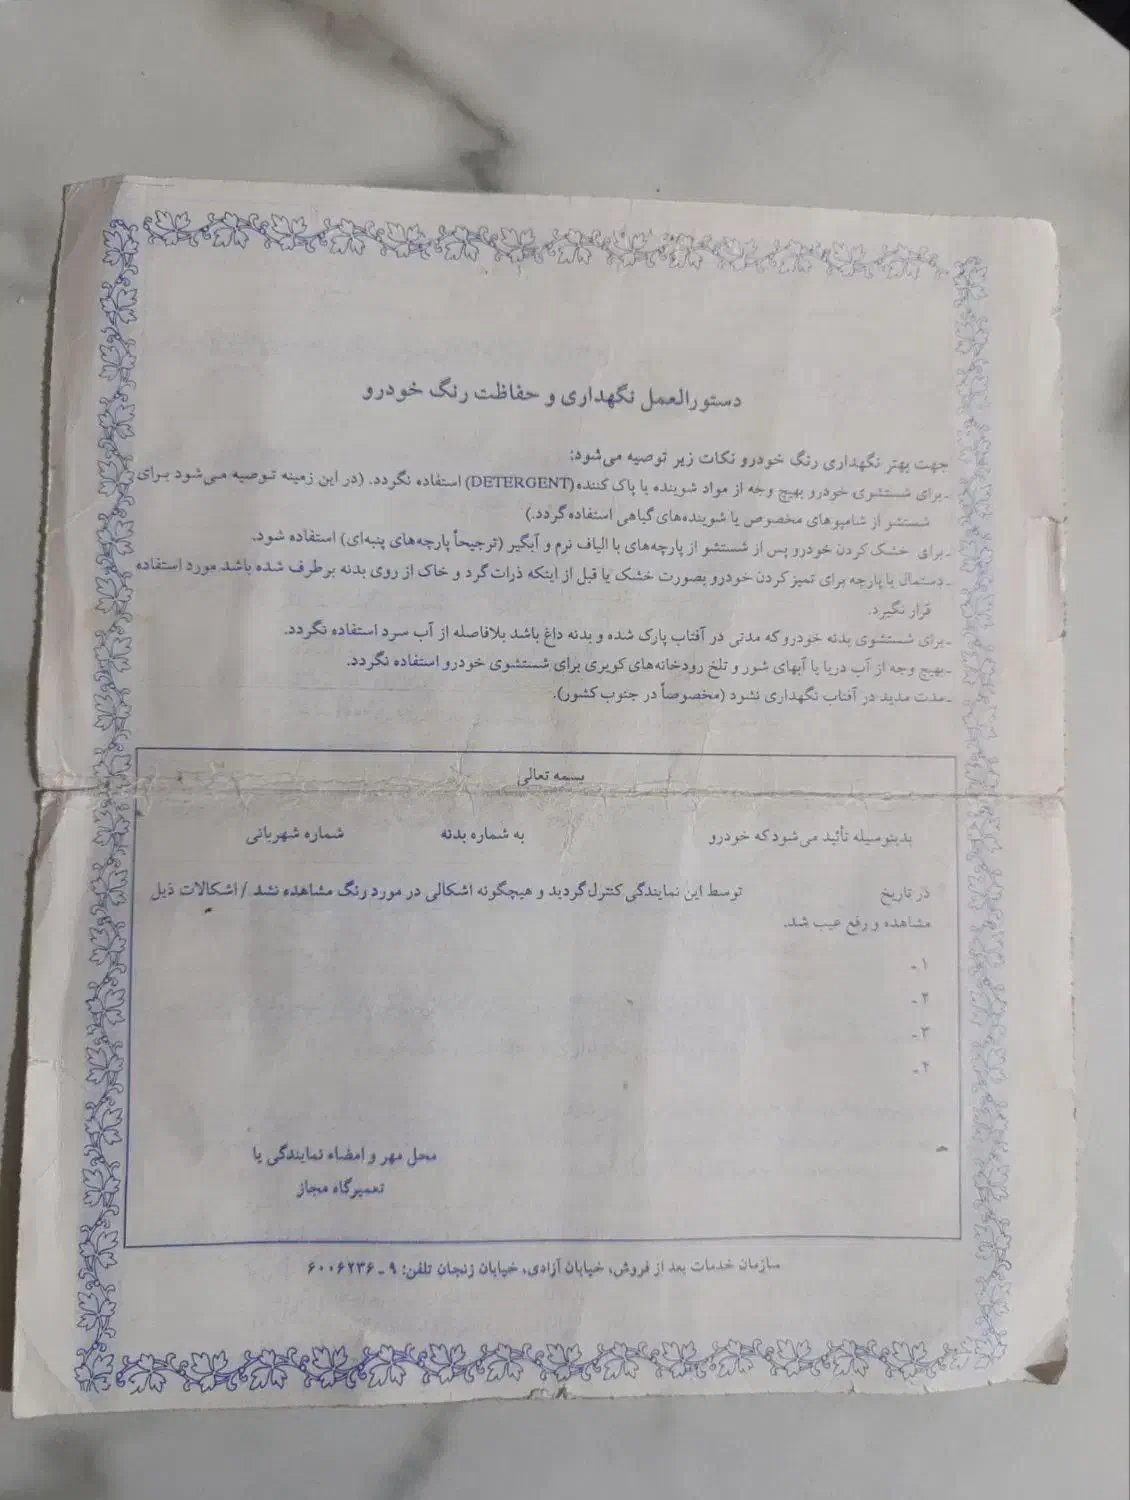 دستورالعمل نگهداری و حفاظت رنگ خودرو
جهت بهتر نگهداری رنگ خودرو نکات زیر توصیه می‌شود:
ـ برای شستشوی خودرو بهیچ وجه از مواد شوینده یا پاک کننده (DETERGENT) استفاده نگردد. (در این زمینه توصیه می‌شود برای
شستشو از شامپوهای مخصوص یا شوینده‌های گیاهی استفاده گردد.)
ـ برای خشک کردن خودرو پس از شستشو از پارچه‌های با الیاف نرم و آبگیر (ترجیحاً پارچه‌های پنبه‌ای) استفاده شود.
ـ دستمال یا پارچه برای تمیز کردن خودرو بصورت خشک یا قبل از اینکه ذرات گرد و خاک از روی بدنه برطرف شده باشد مورد استفاده
قرار نگیرد.
ـ برای شستشوی بدنه خودرو که مدتی در آفتاب پارک شده و بدنه داغ باشد بلافاصله از آب سرد استفاده نگردد.
ـ بهیچ وجه از آب دریا یا آبهای شور و تلخ رودخانه‌های کویری برای شستشوی خودرو استفاده نگردد.
ـ مدت مدید در آفتاب نگهداری نشود (مخصوصاً در جنوب کشور).
بسمه تعالی
بدینوسیله تأئید می‌شود که خودرو به شماره بدنه شماره شهربانی
در تاریخ توسط این نمایندگی کنترل گردید و هیچگونه اشکالی در مورد رنگ مشاهده نشد / اشکالات ذیل
مشاهده و رفع عیب شد.
۱ ـ
۲ ـ
۳ ـ
۴ ـ
محل مهر و امضاء نمایندگی یا
تعمیرگاه مجاز
سازمان خدمات بعد از فروش، خیابان آزادی، خیابان زنجان تلفن: ۹ ـ ۶۰۰۶۲۳۶